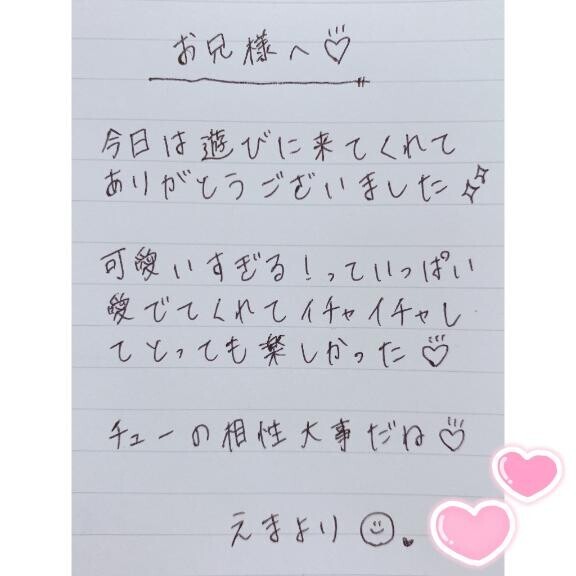 お兄様へ♡
今日は遊びに来てくれて
ありがとうございました✨
可愛いすぎる!っていっぱい
愛でてくれてイチャイチャし
てとっても楽しかった♡
チューの相性大事だね♡
えまより☺♥